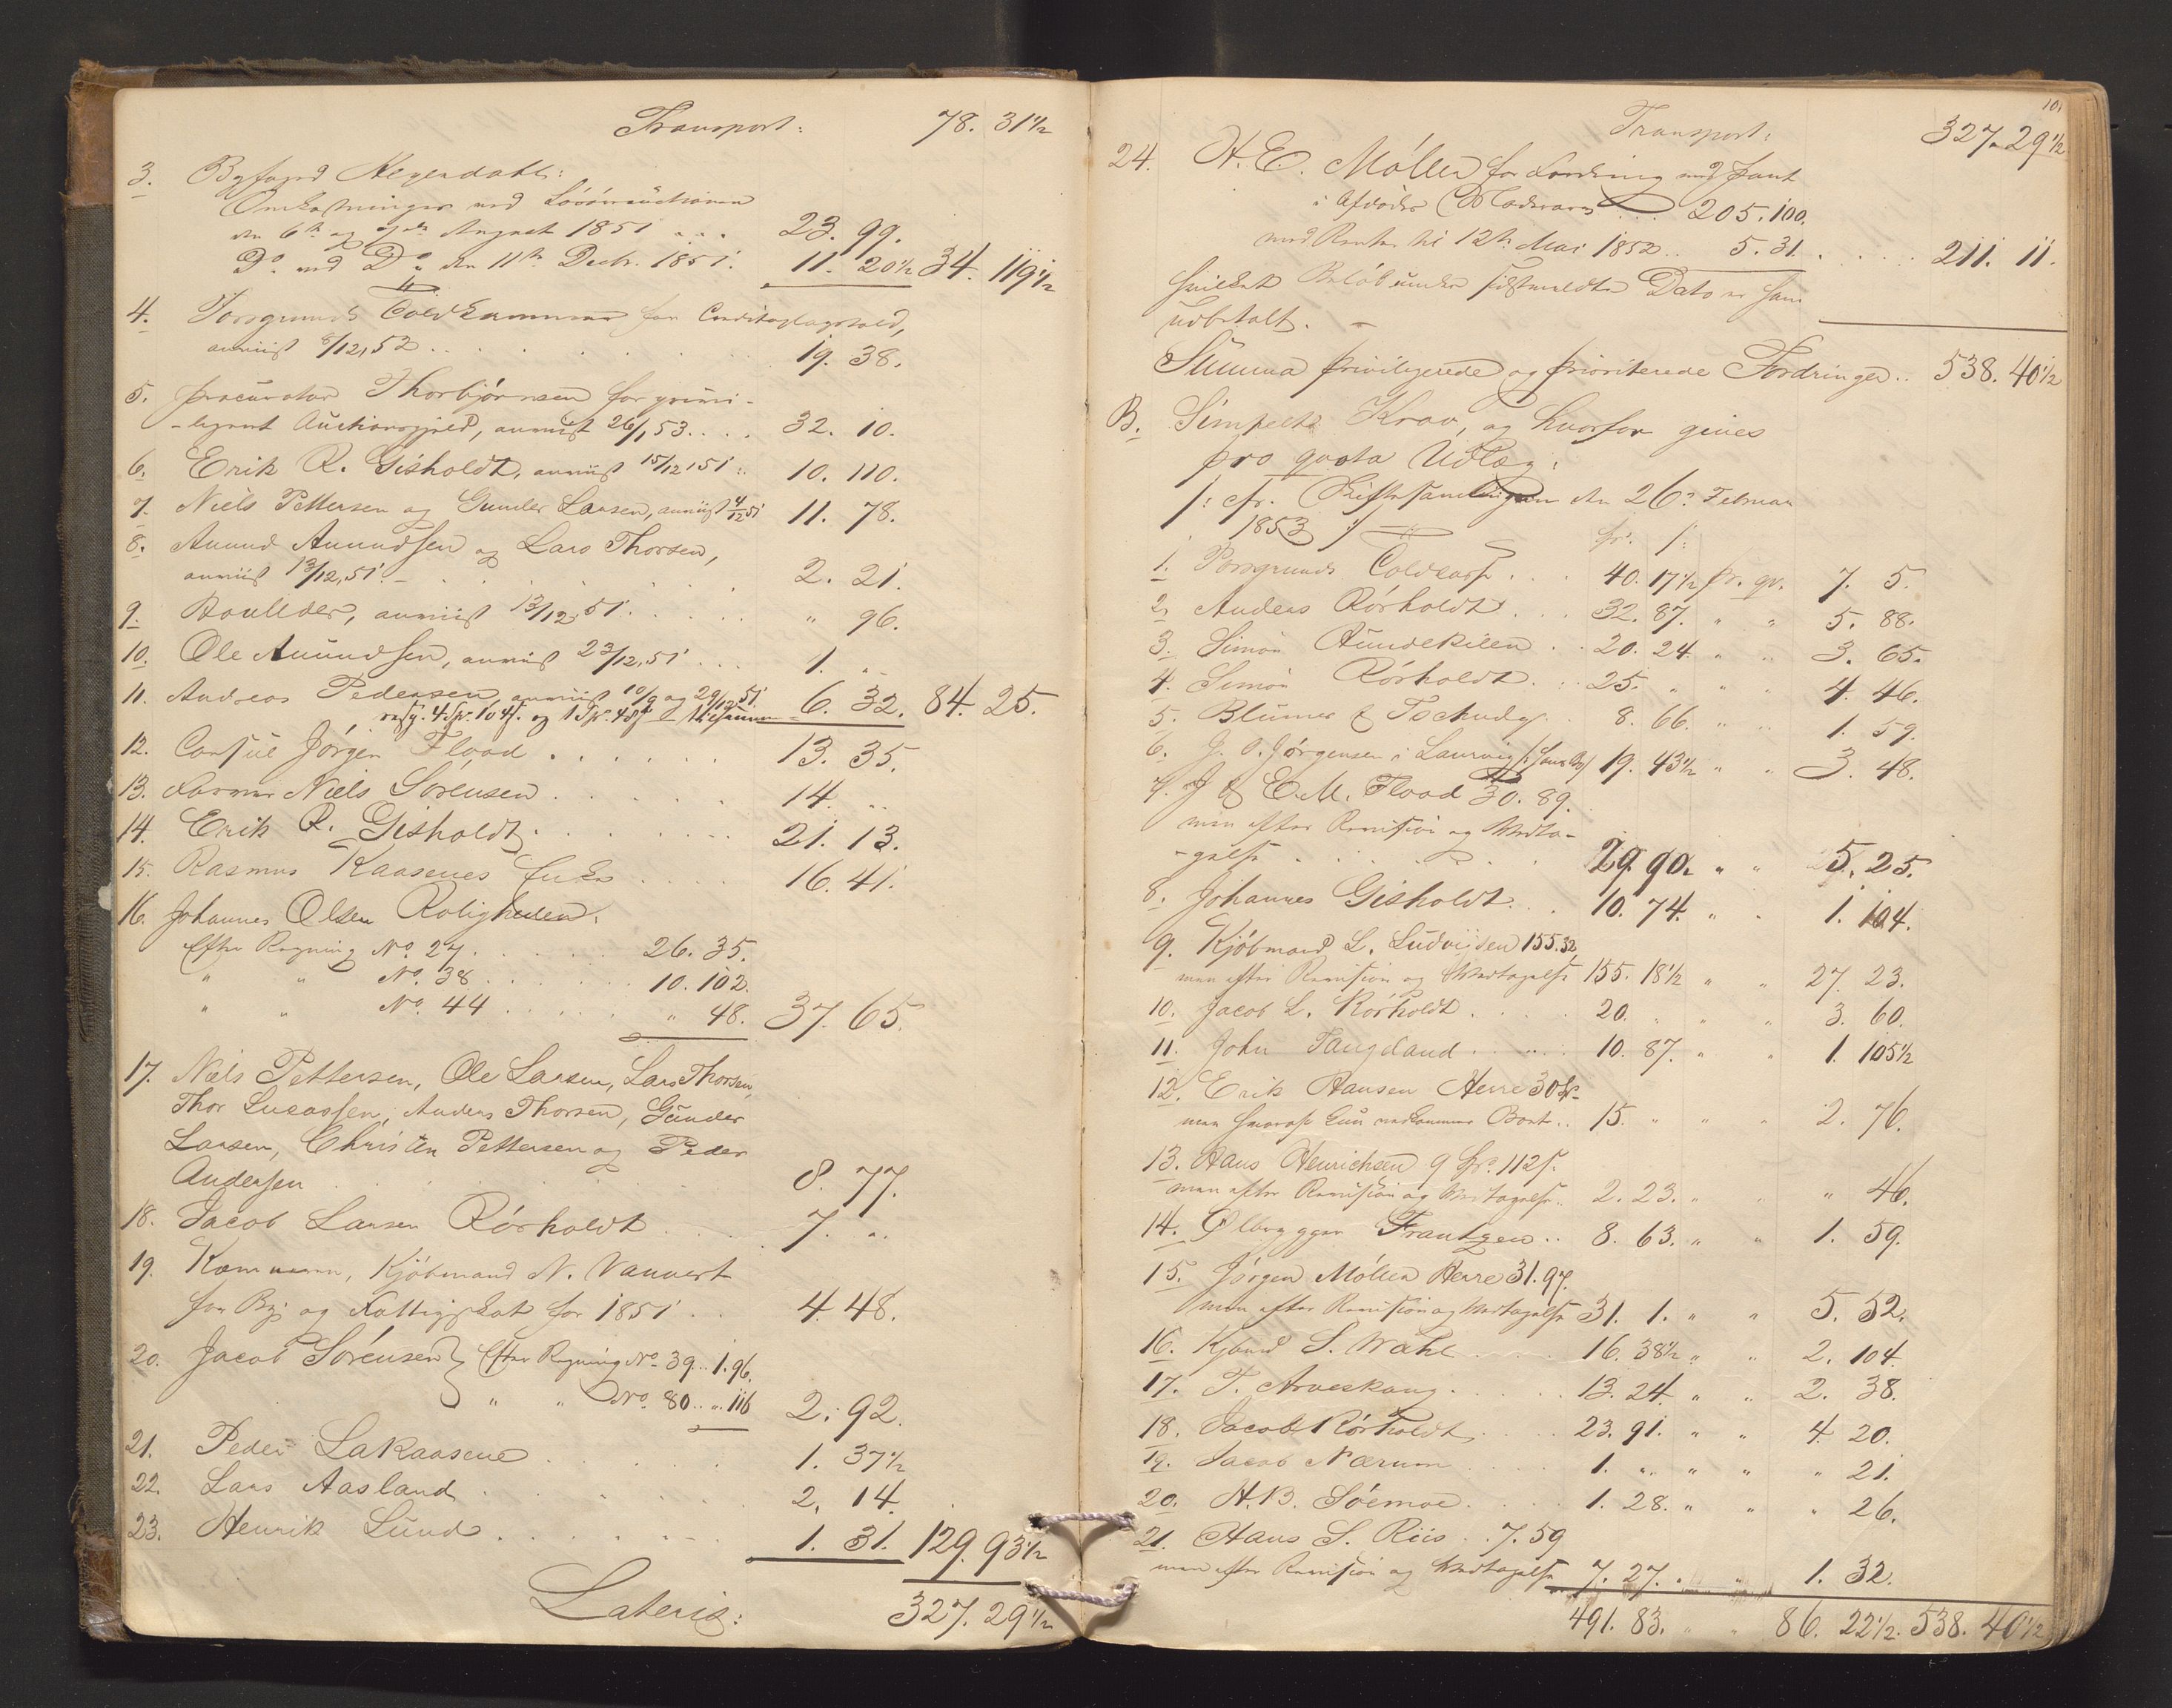 Transport: 78. 31½
3. Byfoged Heyerdahl:
Omkostninger ved Løsøreauctionen
den 6te og 7de August 1851 . . . 23. 99.
Do. ved Do. den 11te Decbr. 1851. 11. 20½ 34. 119½
4. Porsgrunds Toldkammer for Creditoplagstold,
anmeldt 8/12, 52 . . . 19. 38.
5. Procurator Thorbjørnsen for privi-
-legeret Auctionsgjeld, 26/1 53. . . . 32. 10.
6. Erik R. Gisholdt, 15/12, 51 . . 10. 110.
7. Niels Pettersen og Gunder Larsen, 4/12 51 11. 78.
8. Anund Anundsen og Lars Thorsen,
13/12, 51. . . . 2. 21.
9. 13/12, 51. . . . " 96.
10. Ole Anundsen, 23/12, 51 . . . 1. "
11. Andreas Pedersen, 10/9 og 29/12 51. 6. 32. 84. 25.
4 Sp. 104 s. og 1 Sp. 48 s. tilsammen
12. Consul Jørgen Flood . . . 13. 35.
13. Niels Sørensen . . . 14. "
14. Erik R. Gisholdt . . . 21. 13.
15. Rasmus Kaasenes Enke . . . 16. 41.
16. Johannes Olsen Roligheden:
Efter Regning No. 27 . . . 26. 35.
" " No. 38 . . . 10. 102.
" " No. 44 . . . " 48. 37. 65.
17. Niels Pettersen, Ole Larsen, Lars Thorsen,
Thor Lucassen, Anders Thorsen, Gunder
Larsen, Christen Pettersen og Peder
Andersen . . . 8. 77.
18. Jacob Larsen Rørholdt . . . 7. "
19. Kjøbmand N. Vauvert
for By- og Fattigskat for 1851 . . 4. 48.
20. Jacob Sørensen Efter Regning No. 39 . . 1. 96.
" " No. 80 . . " 116 2. 92.
21. Peder Lakaasene . . . 1. 37½
22. Lars Aasland . . . 2. 14.
23. Henrik Lund . . . 1. 31. 129. 93½
Lateris: 327. 29½
101
Transport: 327. 29½
24. H. E. Møller for Fordring med Pant
i Afdødes . . . 205. 100.
med Renter til 12te Mai 1852 . . 5. 31. . . . 211. 11.
hvilket Beløb under sidstmeldte Dato er ham
udbetalt. —
Summa privilegerede og prioriterede Fordringer . . 538. 40½
B. Simpelt Krav, og hvorfor gives
pro qvota Udlæg:
/: cfr. Skiftesamlingen den 26de Februar
1853 :/ Sp. s.
1. Porsgrunds Toldcasse . . . 40. 17½ pr. qv. 7. 5.
2. Anders Rørholdt . . . 32. 87. " " 5. 88.
3. Simon Aundekilen . . 20. 24. " " 3. 65.
4. Simon Rørholdt . . 25. " " " 4. 46.
5. Blumer & Tschudy . 8. 66. " " 1. 59.
6. J. O. Jørgensen i Laurvig 19. 43½ " " 3. 48.
7. J. & E. M. Flood 30. 89.
men efter Revision og Vedta-
-gelse . . . 29. 90. " " 5. 25.
8. Johannes Gisholdt . . 10. 74. " " 1. 104.
9. Kjøbmand L. Ludvigsen 155. 32,
men efter Revision og Vedtagelse 155. 18½ " " 27. 23.
10. Jacob L. Rørholdt . . . 20. " " " 3. 60.
11. John Tangeland . . . 10. 87. " " 1. 105½
12. Erik Hansen Herre 30 Sp.
men hvoraf kun vedkommer Boet . . 15. " " " 2. 76.
13. Hans Henrichsen 9 Sp. 112 s.
men efter Revision og Vedtagelse . . 2. 23. " " " 46.
14. Ølbrygger Frantzen . . 8. 63. " " 1. 59.
15. Jørgen Møller Herre 31. 97.
men efter Revision og Vedtagelse 31. 1. " " 5. 52.
16. Kjbmd S. Wahl . . . 16. 38½ " " 2. 104.
17. T. Arveskaug . . . 13. 24. " " 2. 38.
18. Jacob Rørholdt . . . 23. 91. " " 4. 20.
19. Jacob Nærum . . . 1. " " " " 21.
20. H. B. Søemoe . . . 1. 28. " " " 26.
21. Hans S. Riis . . 7. 59
men efter Revision og Vedtagelse 7. 27. " " 1. 32.
491. 83. " " 86. 22½. 538. 40½